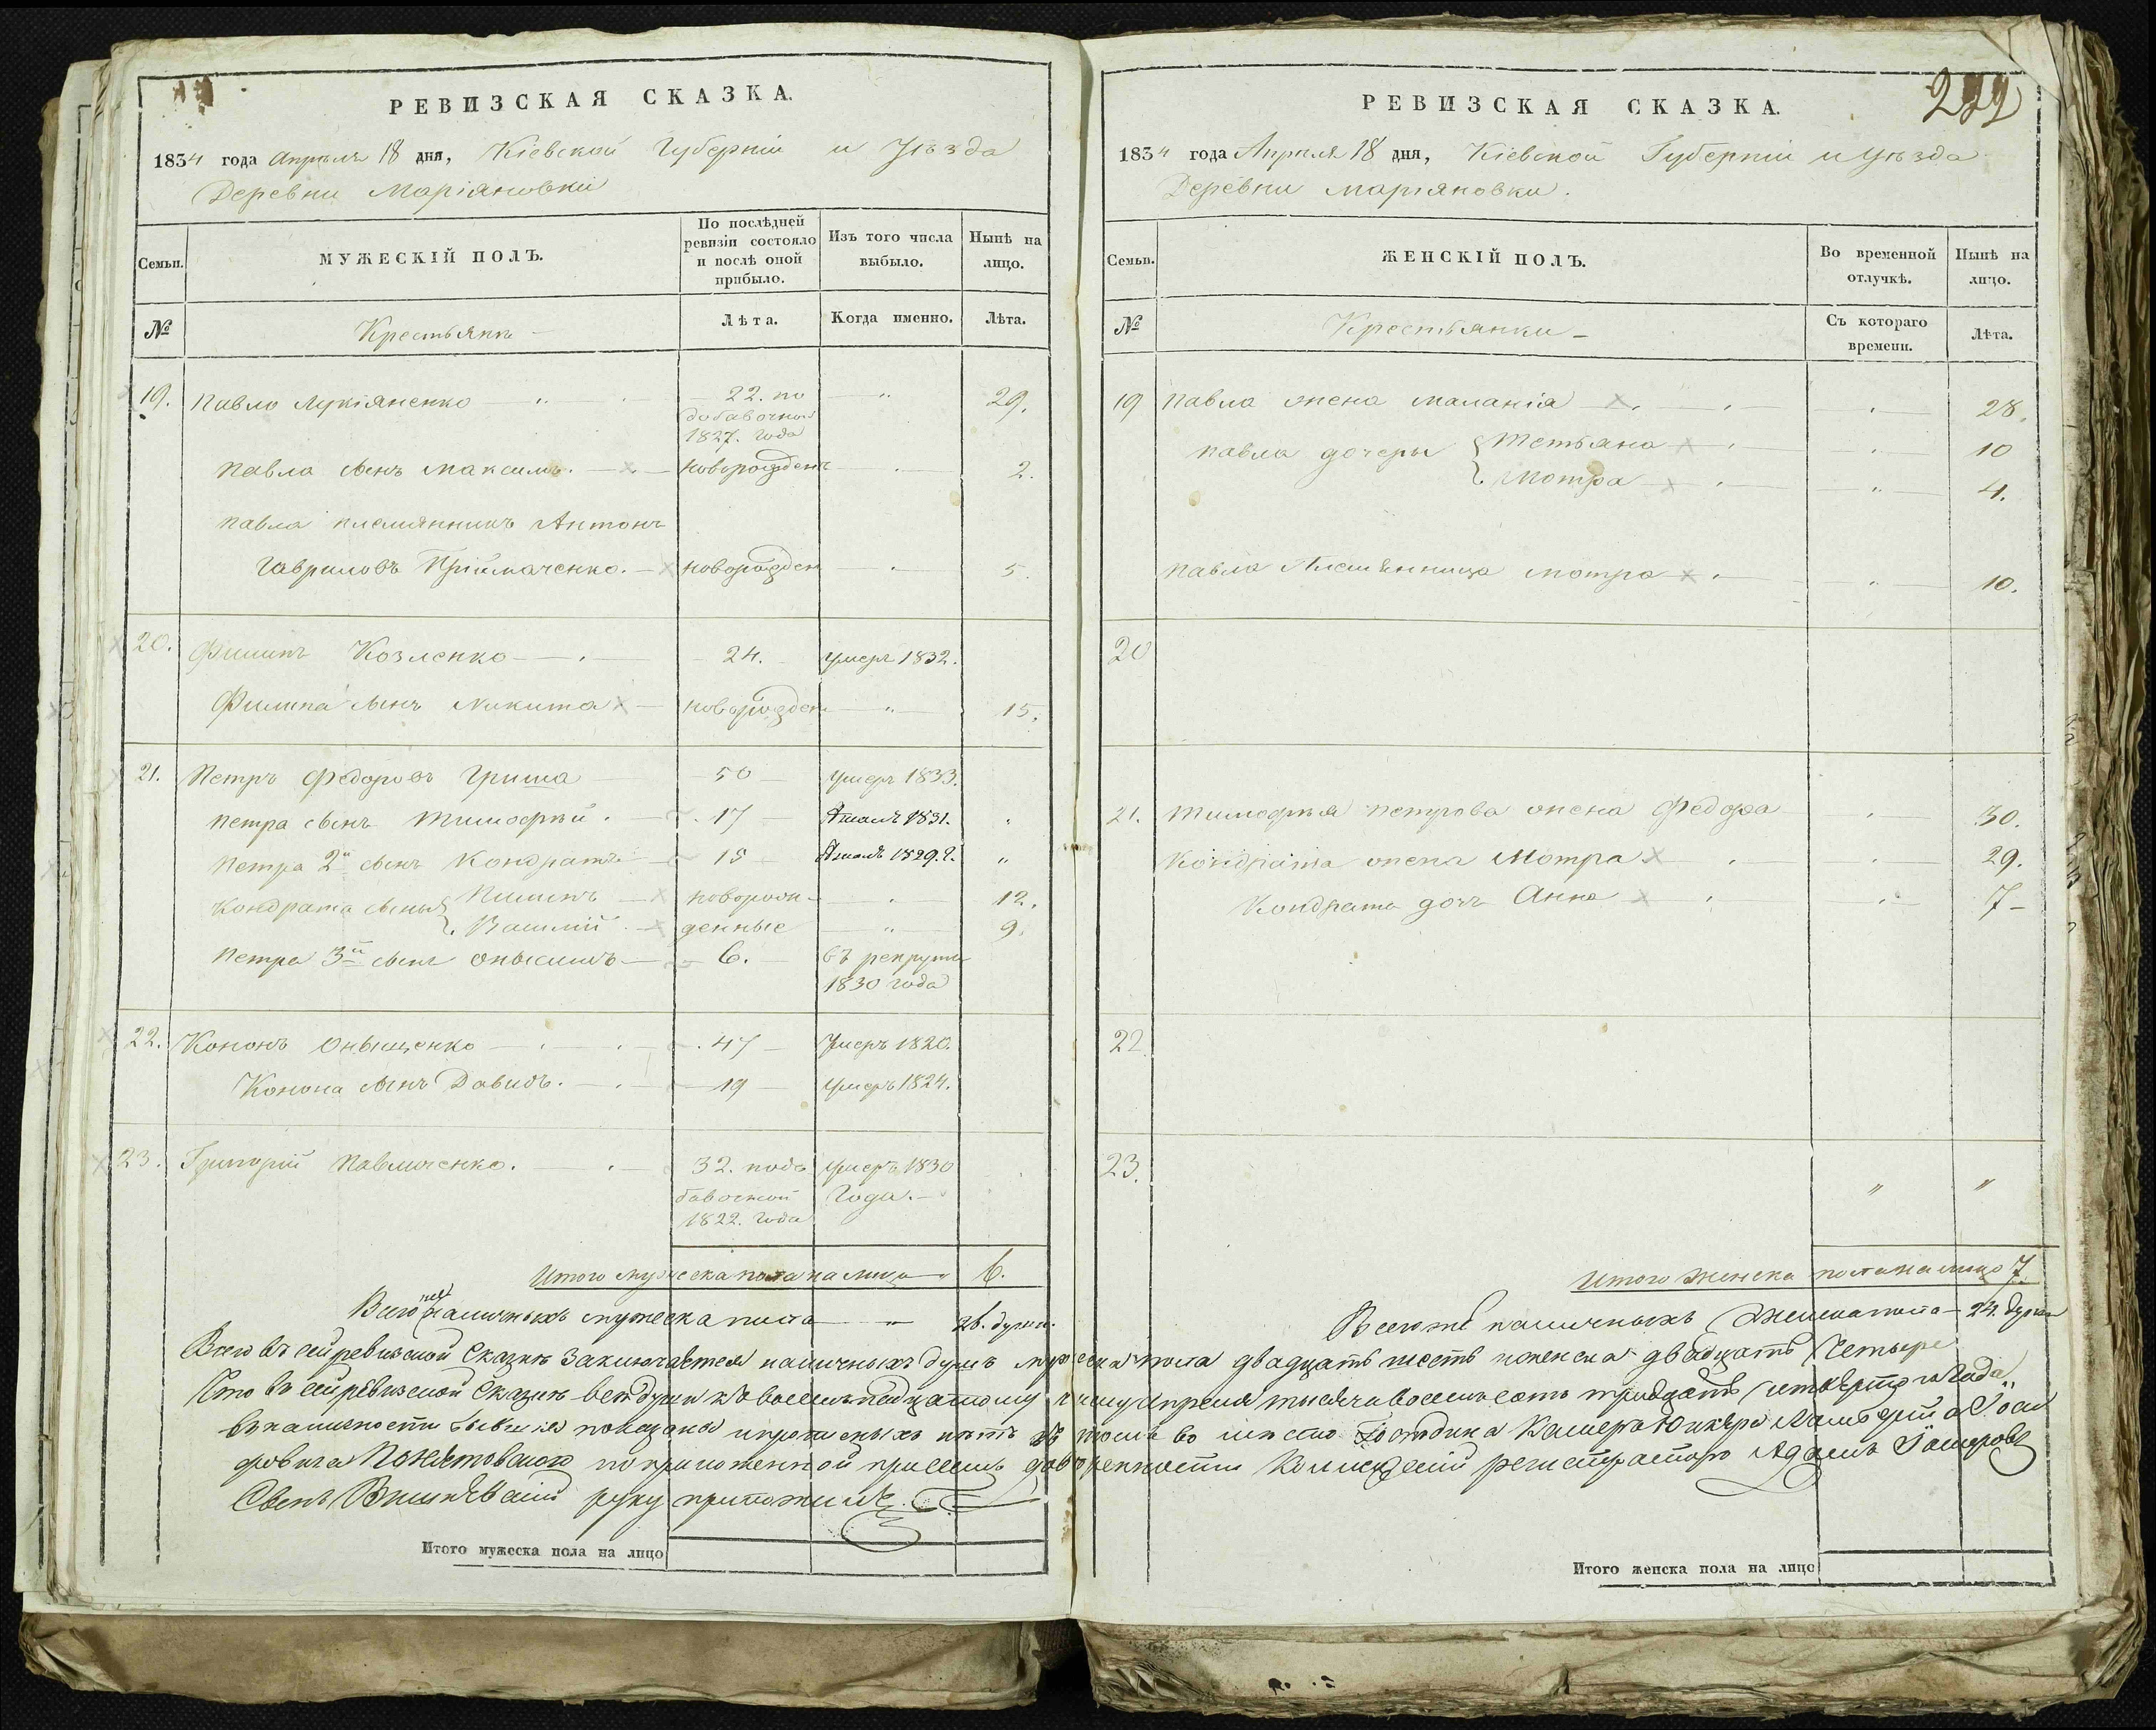 РЕВИЗСКАЯ СКАЗКА.
1834 года Апрѣля 18 дня, Кіевской Губерніи и Уѣзда
Деревни Маріяновки
Семьи.
МУЖЕСКІЙ ПОЛЪ.
По послѣдней ревизіи состояло и послѣ оной прибыло.
Изъ того числа выбыло.
Нынѣ на лицо.
№
Крестьянъ
Лѣта.
Когда именно.
Лѣта.
19. Павло Лукіяненко 22. по " 29.
добавочной
1827. года
Павла сынъ Максимъ. новорожден " 2.
Павла племянникъ Антонъ
Гавриловъ Пріймаченко. новорожден " 5.
20. Филипъ Козленко 24. умеръ 1832.
Филипа сынъ Микита новорожден " 15.
21. Петръ Федоровъ Гриша 50 умеръ 1833.
Петра сынъ Тимофѣй. 17 1831. "
Петра 2й сынъ Кондратъ 15 1829. г. "
Кондрата сыны Пилипъ новорож- " 12.
Василій денные " 9.
Петра 3й сынъ Онысимъ 6. въ рекруты
1830 года
22. Кононъ Онищенко 47 Умеръ 1820.
Конона сынъ Давидъ. 19 умеръ 1824.
23. Григорій Павличенко. 32. подо умеръ 1830
бавочной Года.
1822. года
Итого мужеска пола на лицо 6.
Всего наличныхъ мужеска пола " 26. душъ.
РЕВИЗСКАЯ СКАЗКА.
279
1834 года Апрѣля 18 дня, Кіевской Губерніи и Уѣзда
Деревни Маріяновки.
Семьи.
ЖЕНСКІЙ ПОЛЪ.
Во временной отлучкѣ.
Нынѣ на лицо.
№
Крестьянки
Съ котораго времени.
Лѣта.
19 Павла жена Маланія " 28.
Павла дочеры Тетьяна " 10
Мотра " 4.
Павла Племянница Мотра " 10.
20
21. Тимофѣя Петрова жена Федора " 30.
Кондрата жена Мотра " 29.
Кондрата дочь Анна " 7
22
23. " "
Итого женска пола на лицо 7.
Всего же наличныхъ женска пола 24. души
Всего въ сей ревизской Сказкѣ заключается наличныхъ душъ мужеска пола двадцать шесть женска двадцать Четыре
Что въ сей ревизской Сказкѣ всѣ души къ восемьнадцатому числу Апреля тысяча восемьсотъ тридцать четвертого Года
въ наличности бывшія показаны и прописныхъ нѣтъ въ томъ во мѣсто Господина Камеръ Юнкера
Понятовского по приложенной при семъ довѣренности Колежскій регистраторъ Адамъ
сынъ Вишневскій руку приложилъ.
Итого мужеска пола на лицо
Итого женска пола на лицо